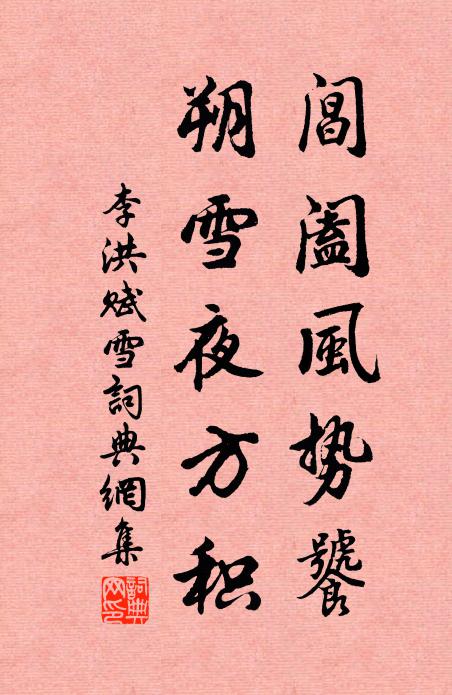 閶闔風势饕
朔雪夜方积
李洪賦雪詞典網集
詞典網印